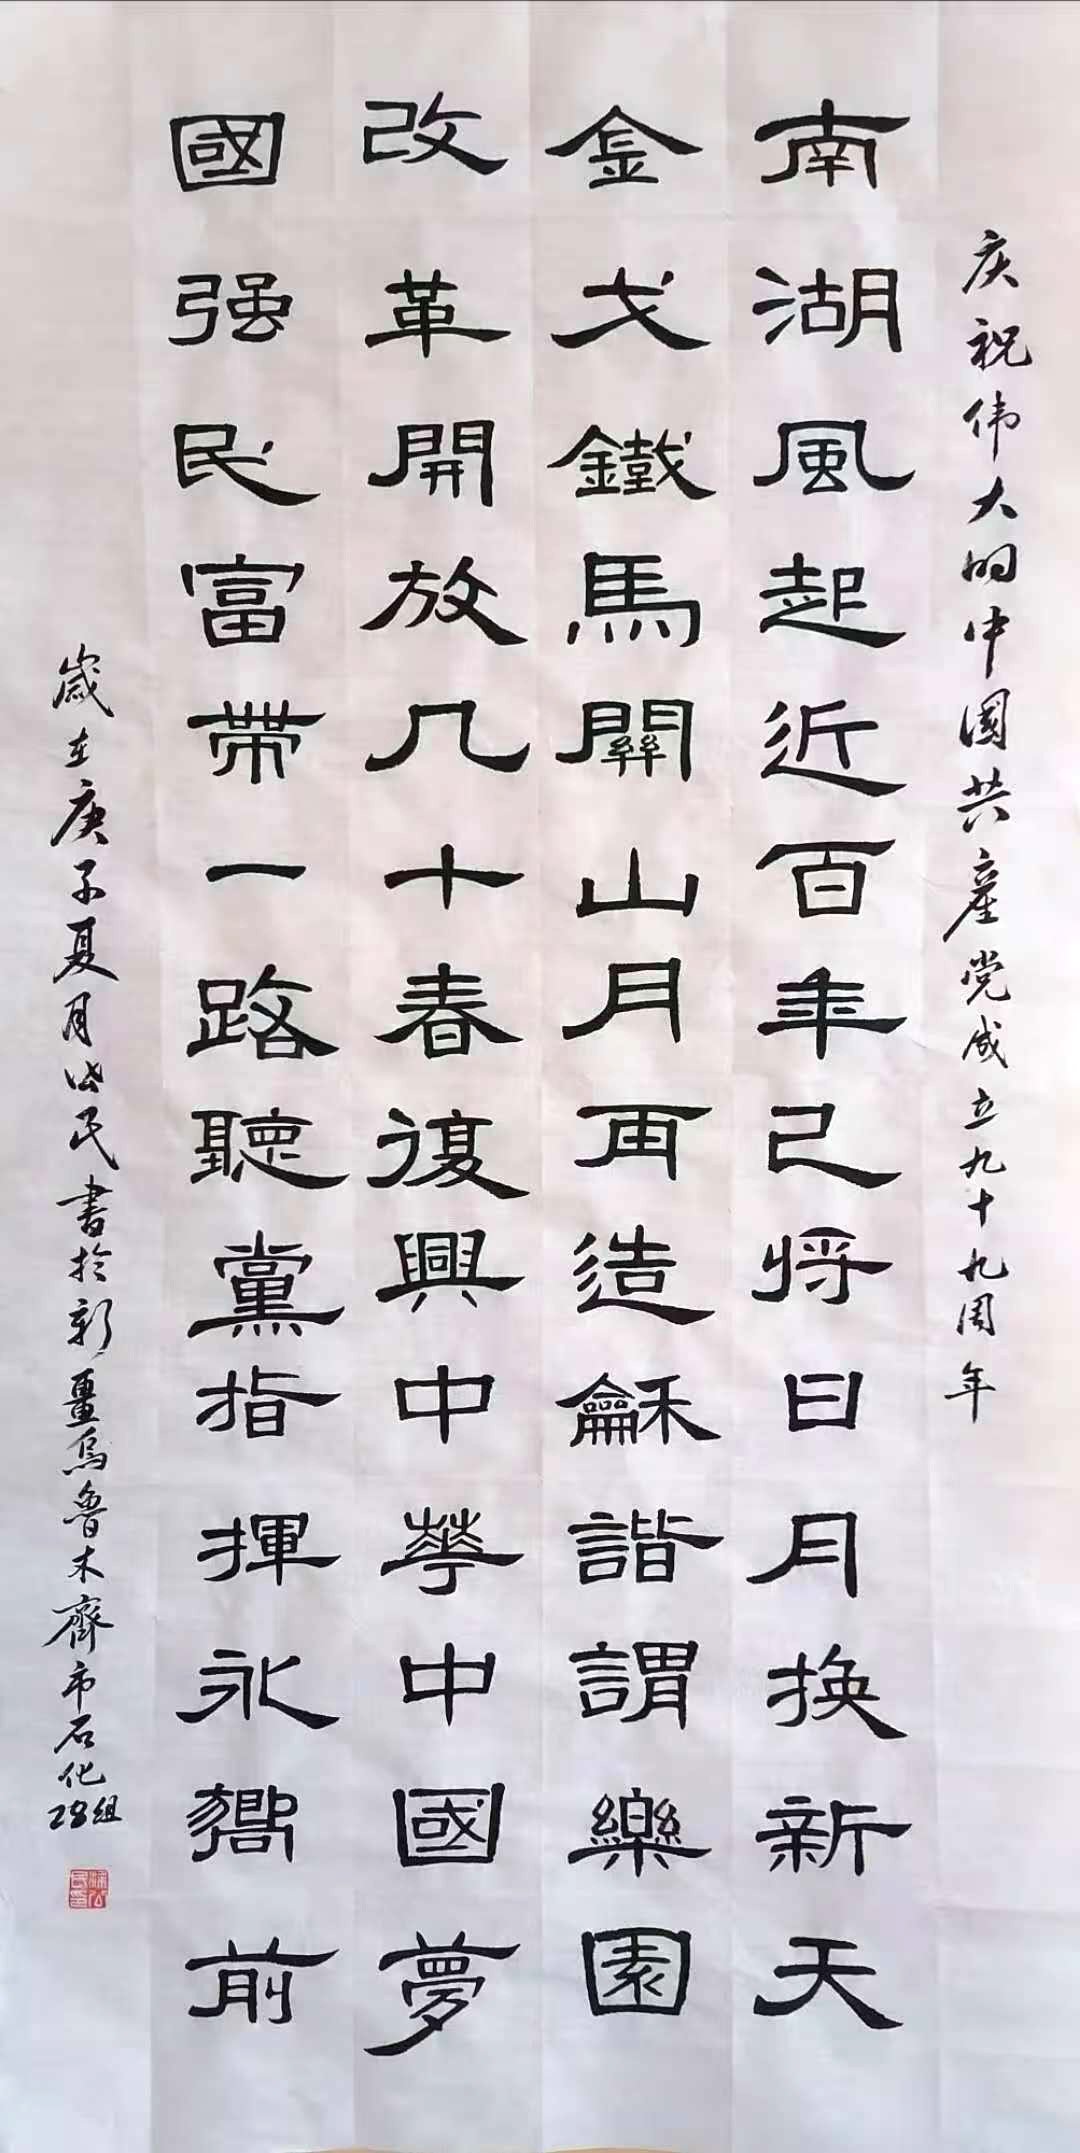 庆祝伟大的中國共產党成立九十九周年
南湖風起近百年已将日月换新天
金戈鐵馬關山月再造龢諧謂樂園
改革開放几十春復興中華中國夢
國强民富帶一路聽黨指揮永嚮前
歲在庚子夏月公民書於新畺烏魯木齊市石化28组